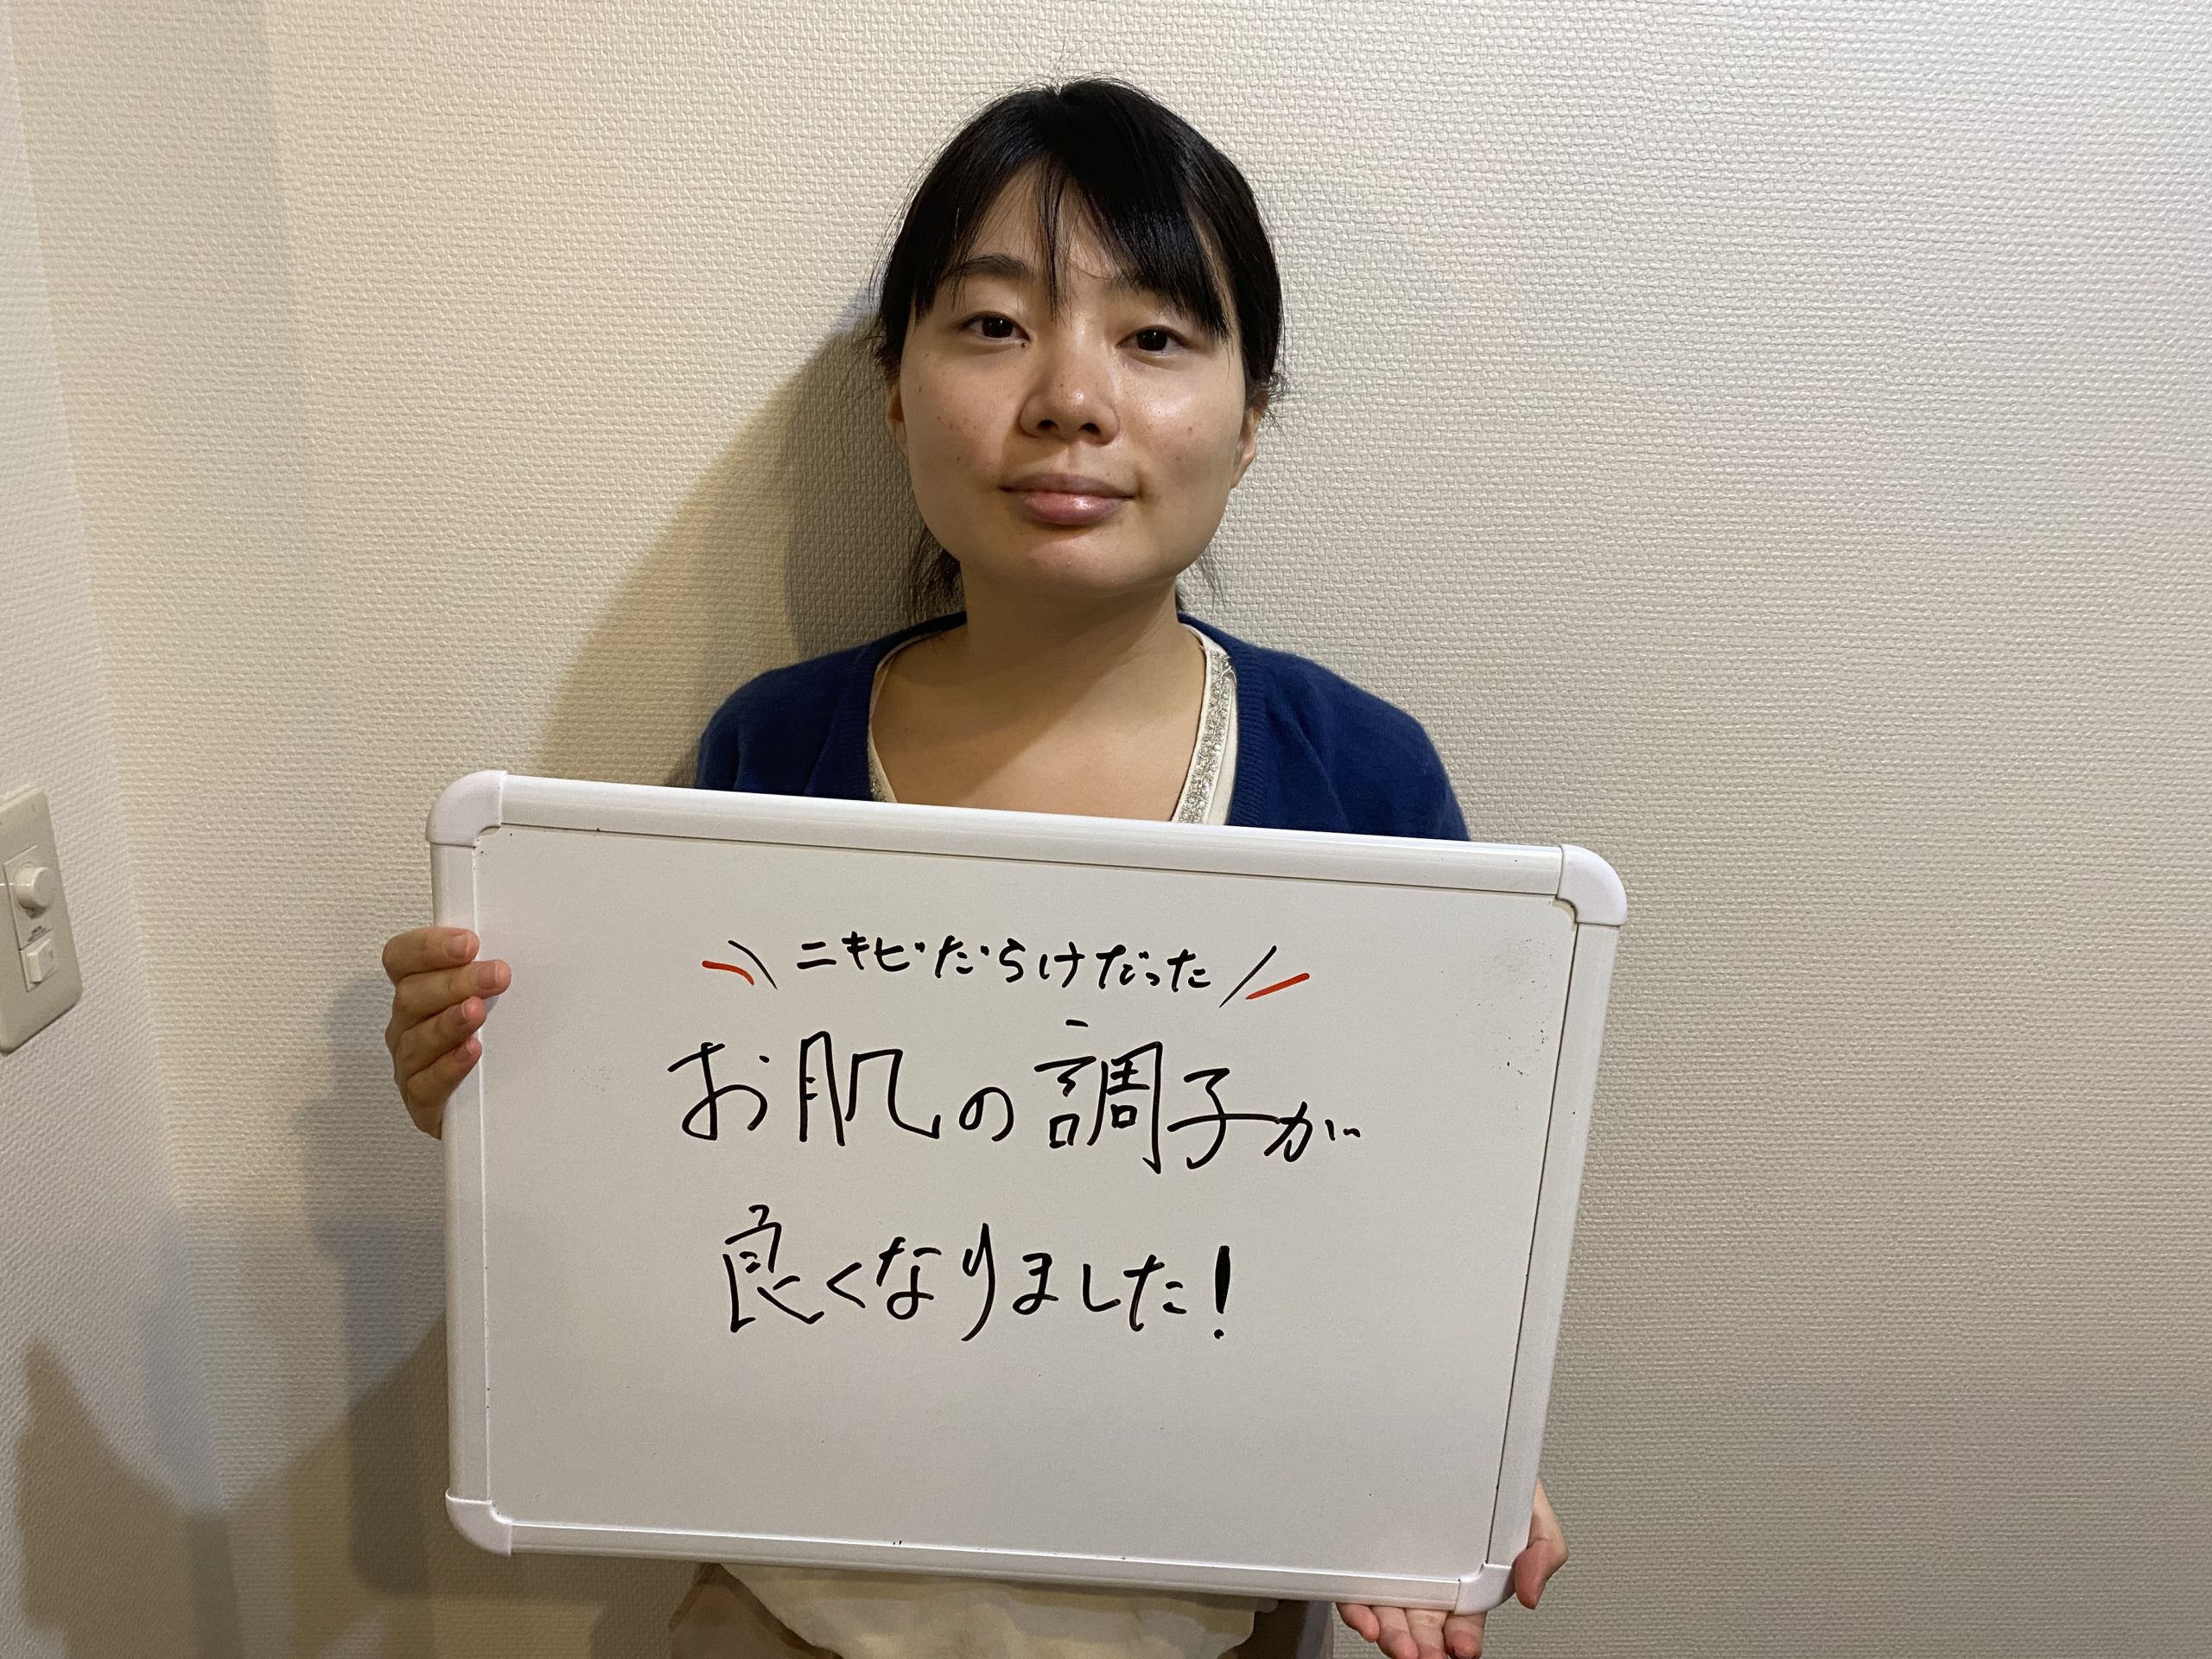 ニキビだらけだった
お肌の調子が
良くなりました!